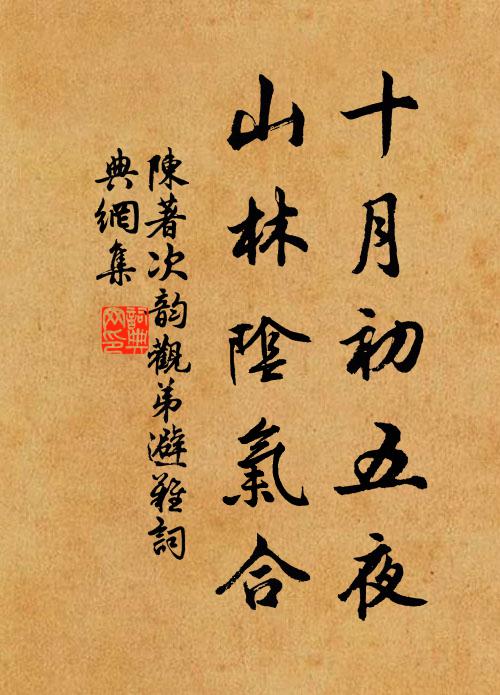 十月初五夜
山林陰氣合
陳著次韵觀弟避難詞
典網集
詞典網印